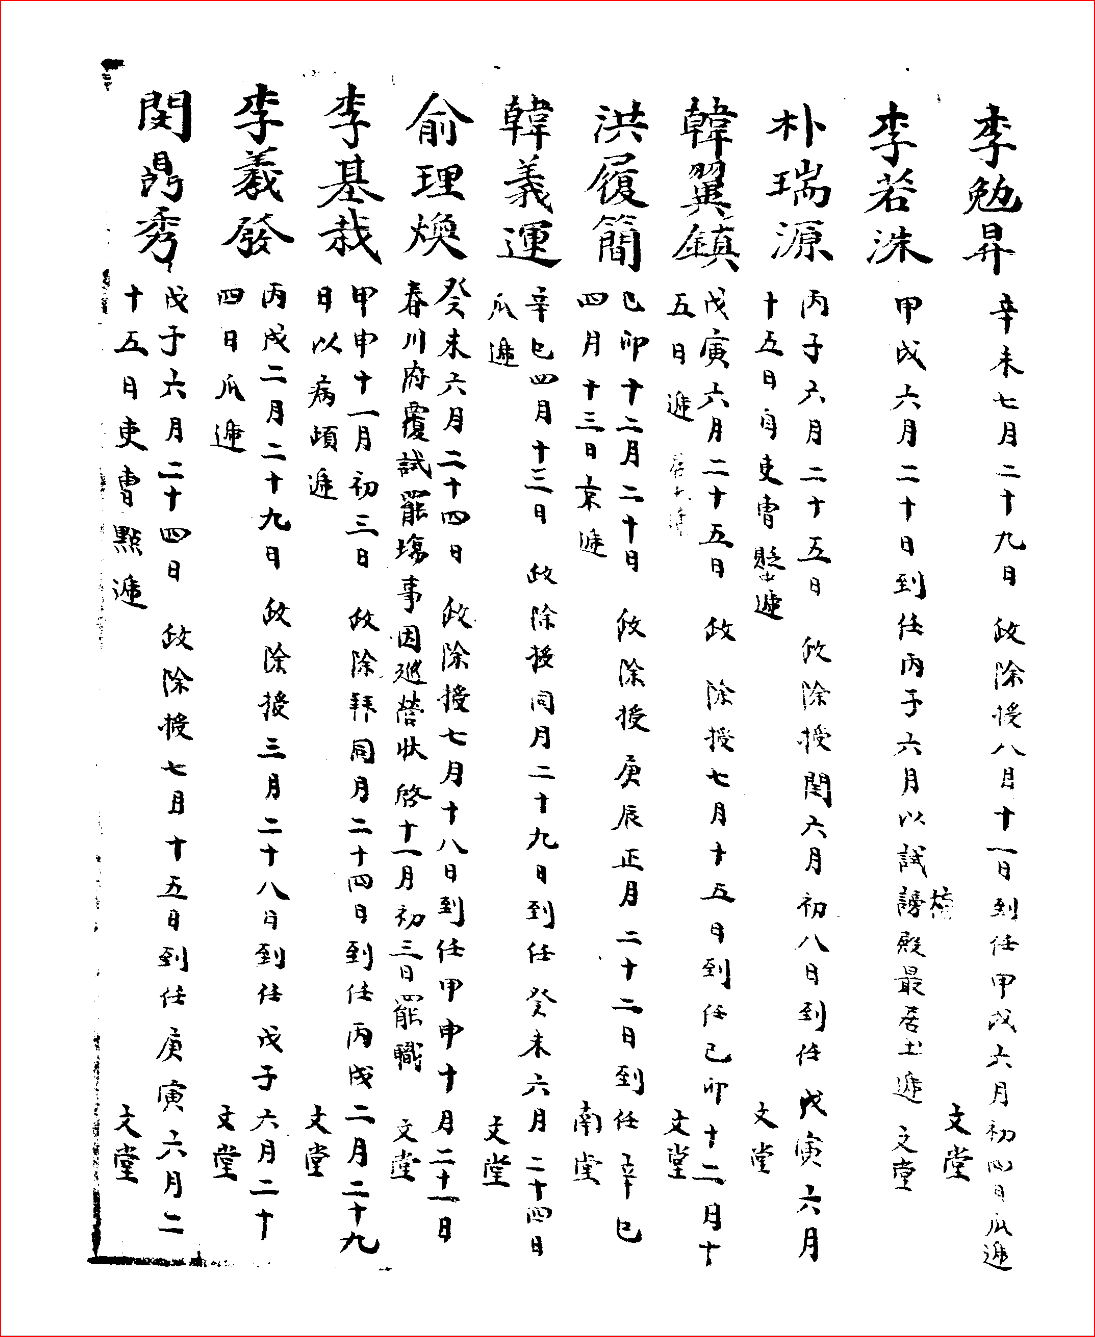 李勉昇
辛未七月二十九日 政除授八月十一日到任甲戌六月初四日瓜遞
文堂
李若洙
甲戌六月二十日到任丙子六月以試謗殿最居土遞 文堂
朴瑞源
丙子六月二十五日 政除授閏六月初八日到任戊寅六月
十五日自吏曹貶中遞 文堂
韓翼鎮
戊寅六月二十五日 政 除授七月十五日到任己卯十二月十
五日遞 文堂
洪履簡
己卯十二月二十日 政除授庚辰正月二十二日到任辛巳
四月十三日京遞 南堂
韓義運
辛巳四月十三日 政除授同月二十九日到任癸未六月二十四日
瓜遞 文堂
俞理煥
癸未六月二十四日 政除授七月十八日到任甲申十月二十一日
春川府覆試罷塲事因巡營狀啓十一月初三日罷職 文堂
李基栽
甲申十一月初三日 政除拜同月二十四日到任丙戌二月二十九
日以病頉遞 文堂
李羲發
丙戌二月二十九日 政除授三月二十八日到任戊子六月二十
四日瓜遞 文堂
閔鼎秀
戊子六月二十四日 政除授七月十五日到任庚寅六月二
十五日吏曹點遞 文堂